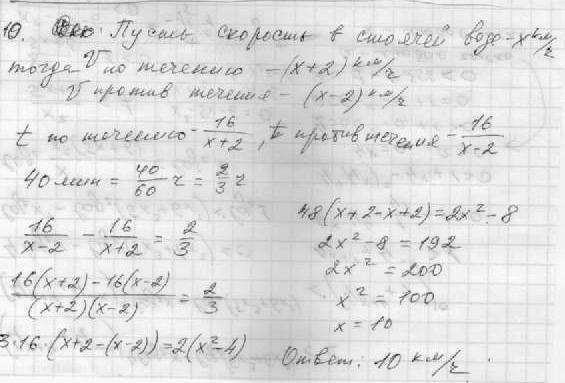 10. Пусть скорость в стоячей воде - x км/г
тогда V по течению - (x+2) км/г
V против течения - (x-2) км/г
t по течению - 16/(x+2), t против течения - 16/(x-2)
40 мин = 40/60 ч = 2/3 ч
16/(x-2) - 16/(x+2) = 2/3
(16(x+2)-16(x-2))/((x+2)(x-2)) = 2/3
3·16·(x+2-(x-2))=2(x²-4)
48(x+2-x+2)=2x²-8
2x²-8=192
2x²=200
x²=100
x=10
Ответ: 10 км/г